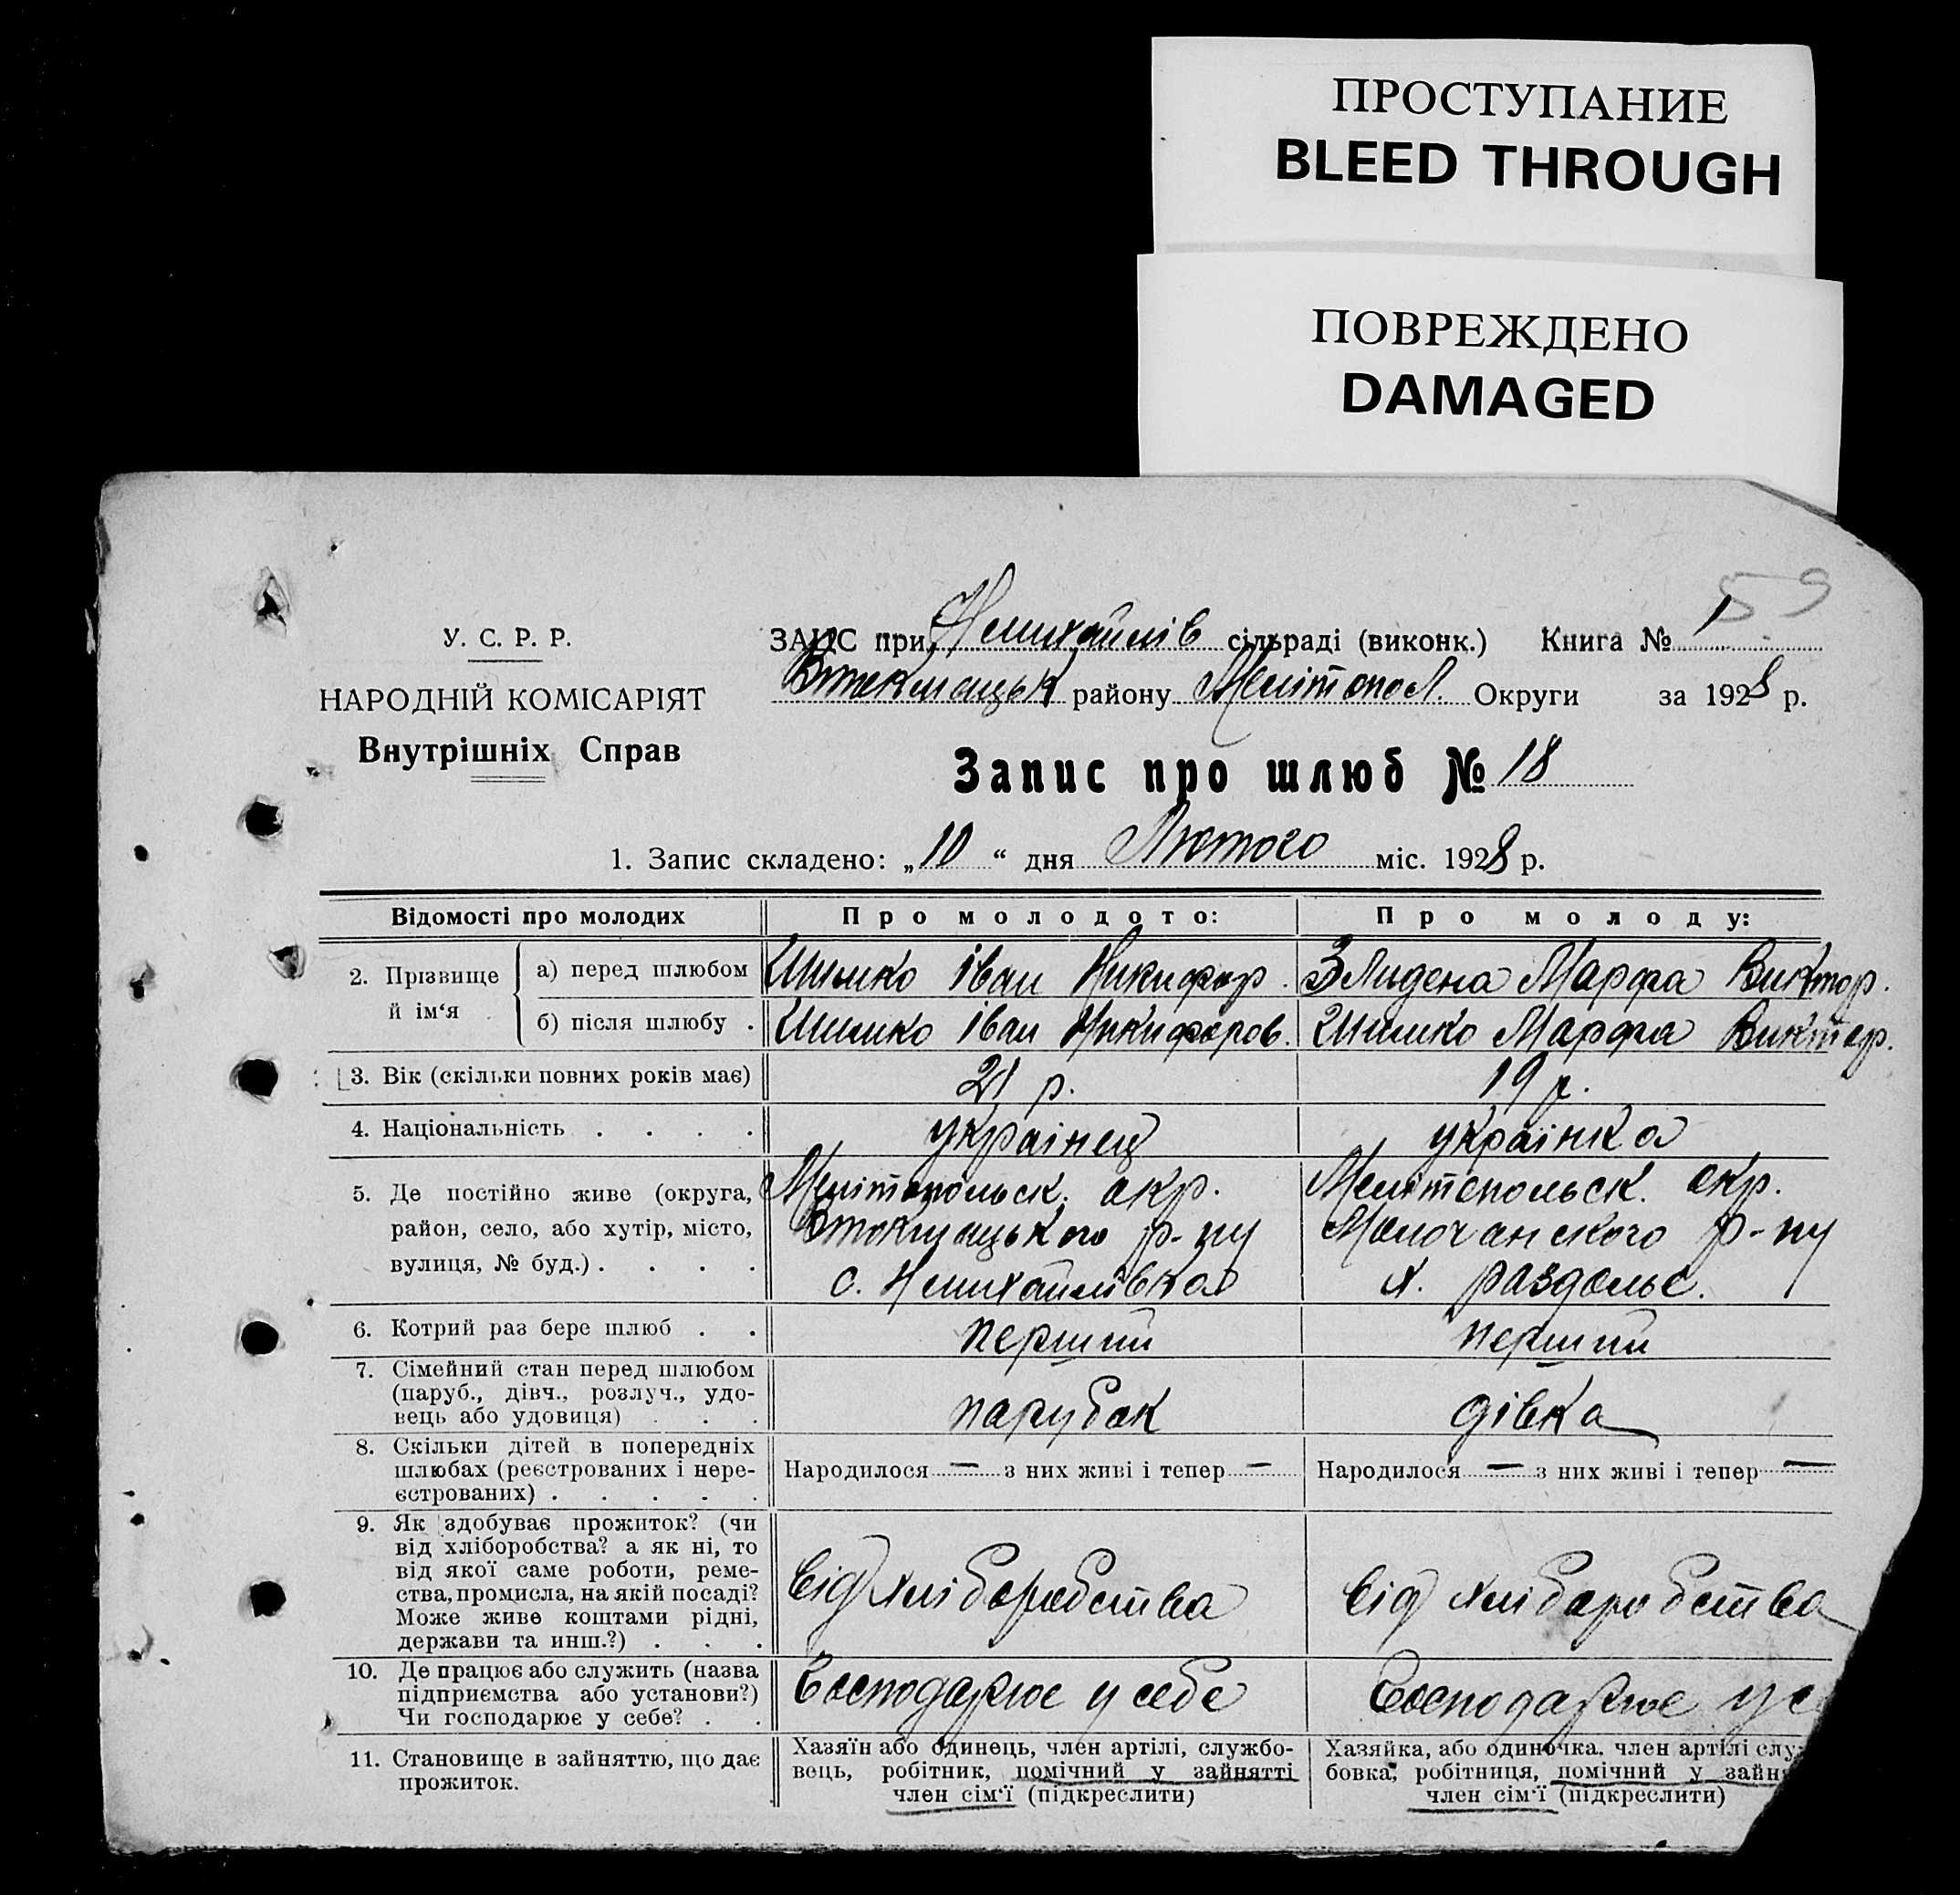 ПРОСТУПАНИЕ
BLEED THROUGH
ПОВРЕЖДЕНО
DAMAGED
59
У. С. Р. Р.
НАРОДНІЙ КОМІСАРІЯТ
Внутрішніх Справ
ЗАГС при Н михайлів сільраді (виконк.) Книга № 1
Втокмацьк району Мелітопол. Округи за 1928 р.
Запис про шлюб № 18
1. Запис складено: „10“ дня Лютого міс. 1928 р.
Відомості про молодих
Про молодого:
Про молоду:
2. Прізвище й ім‘я
а) перед шлюбом
Шишко Іван Никифор.
Злидена Марфа Виктор.
б) після шлюбу .
Шишко Іван Никифоров.
Шишко Марфа Виктор.
3. Вік (скільки повних років має)
21 р.
19 р.
4. Національність . . . .
українец
українка
5. Де постійно живе (округа,
район, село, або хутір, місто,
вулиця, № буд.) . . . .
Мелітопольск. окр.
Втокмацького р-ну
с. Н михайлівка
Мелітопольск. окр.
Молочанского р-ну
х. Раздольє.
6. Котрий раз бере шлюб . .
перший
перший
7. Сімейний стан перед шлюбом
(паруб., дівч., розлуч., удо-
вець або удовиця) . . .
парубак
дівка
8. Скільки дітей в попередніх
шлюбах (реєстрованих і нере-
єстрованих) . . . . .
Народилося — з них живі і тепер —
Народилося — з них живі і тепер —
9. Як здобуває прожиток? (чи
від хліборобства? а як ні, то
від якої саме роботи, реме-
ства, промисла, на якій посаді?
Може живе коштами рідні,
держави та инш.?) . . .
від хліборобства
від хліборобства
10. Де працює або служить (назва
підприємства або установи?)
Чи господарює у себе? . .
Господарює у себе
Господарює у се
11. Становище в зайняттю, що дає
прожиток.
Хазяїн або одинець, член артілі, службо-
вець, робітник, помічний у зайнятті
член сім‘ї (підкреслити)
Хазяйка, або одиночка, член артілі слу-
бовка, робітниця, помічний у зайня
член сім‘ї (підкреслити)